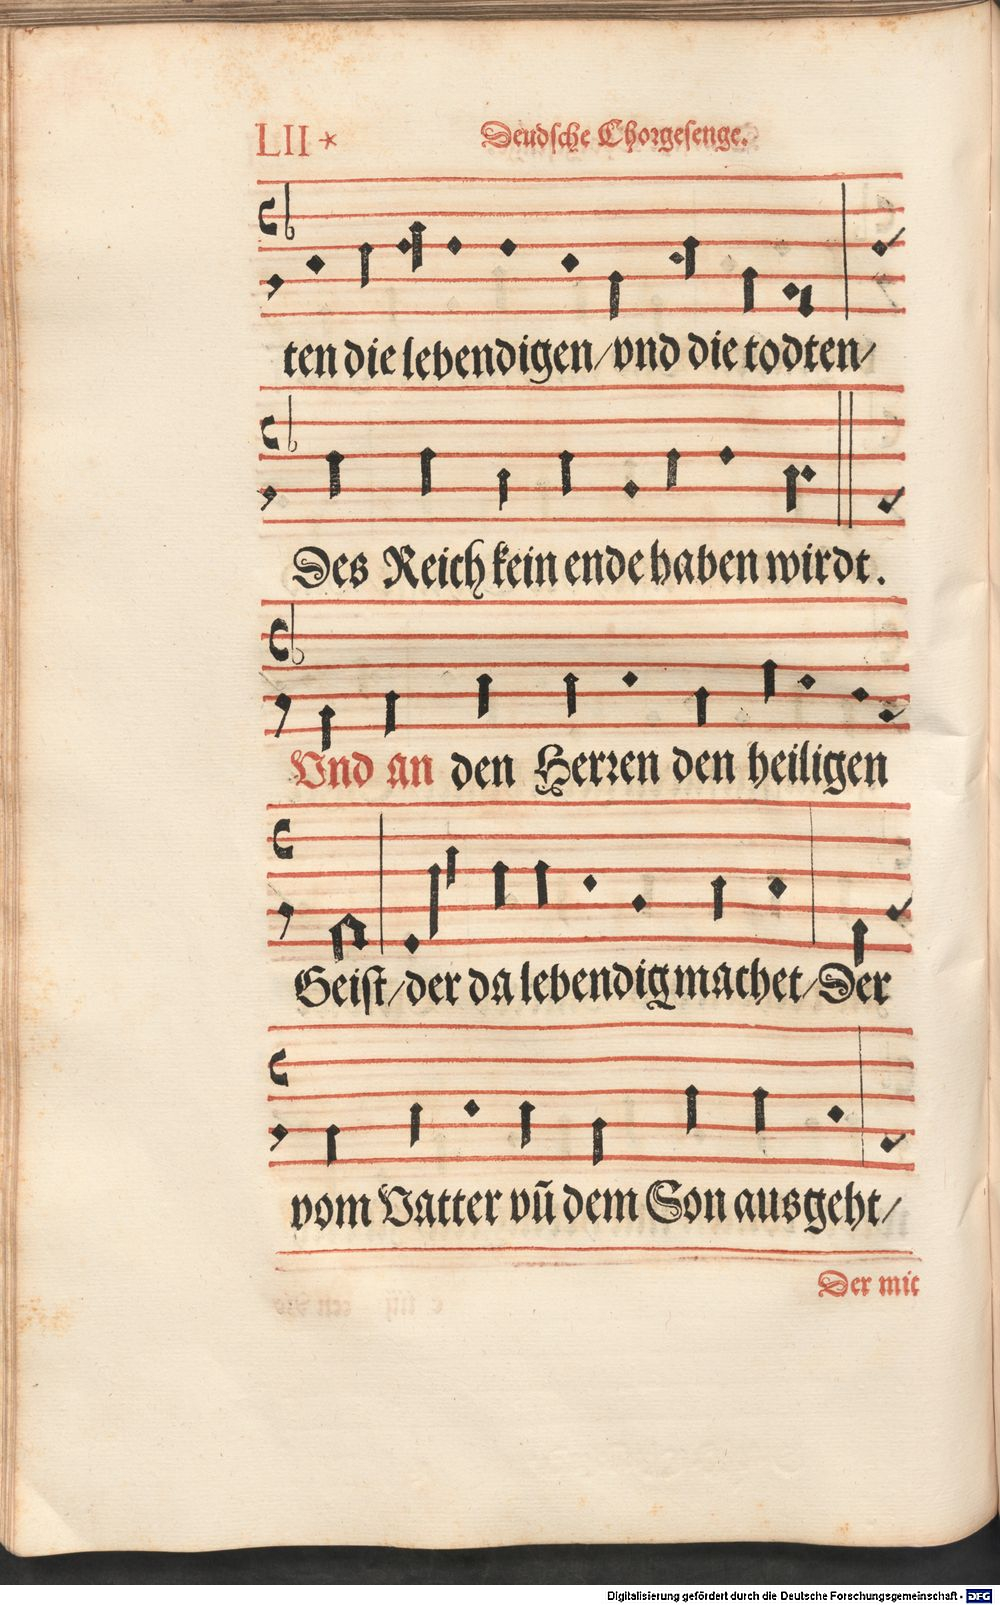 LII *
Deudsche Chorgesenge.
ten die lebendigen/vnd die todten/
Des Reich kein ende haben wirdt.
Vnd an den Herren den heiligen
Geist/der da lebendig machet/Der
vom Vatter vñ dem Son ausgeht/
Der mit
Digitalisierung gefördert durch die Deutsche Forschungsgemeinschaft - DFG